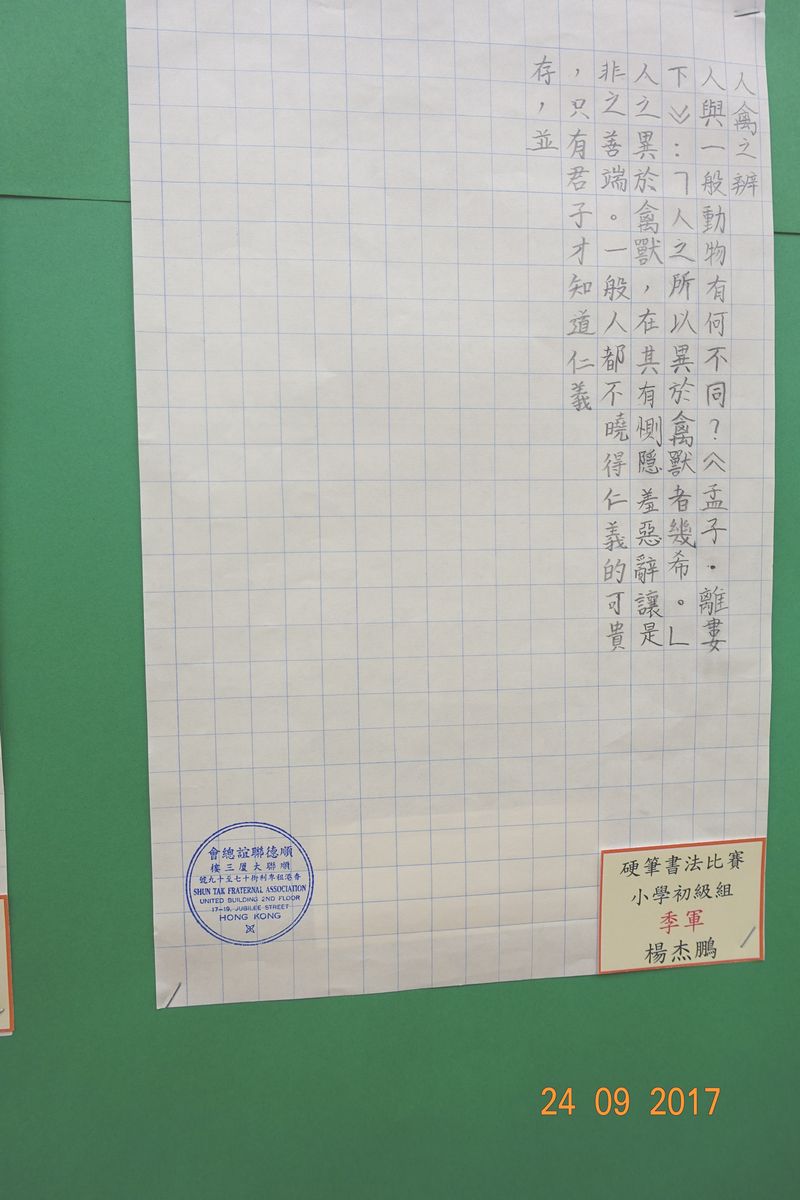 人禽之辨
人與一般動物有何不同？《孟子．離婁
下》：「人之所以異於禽獸者幾希。」
人之異於禽獸，在其有惻隱羞惡辭讓是
非之善端。一般人都不曉得仁義的可貴
，只有君子才知道仁義
存，並
順德聯誼總會
順聯大厦三樓
香港租卑利街十七至十九號
SHUN TAK FRATERNAL ASSOCIATION
UNITED BUILDING 2ND FLOOR
17-19, JUBILEE STREET
HONG KONG
硬筆書法比賽
小學初級組
季軍
楊杰鵬
24 09 2017